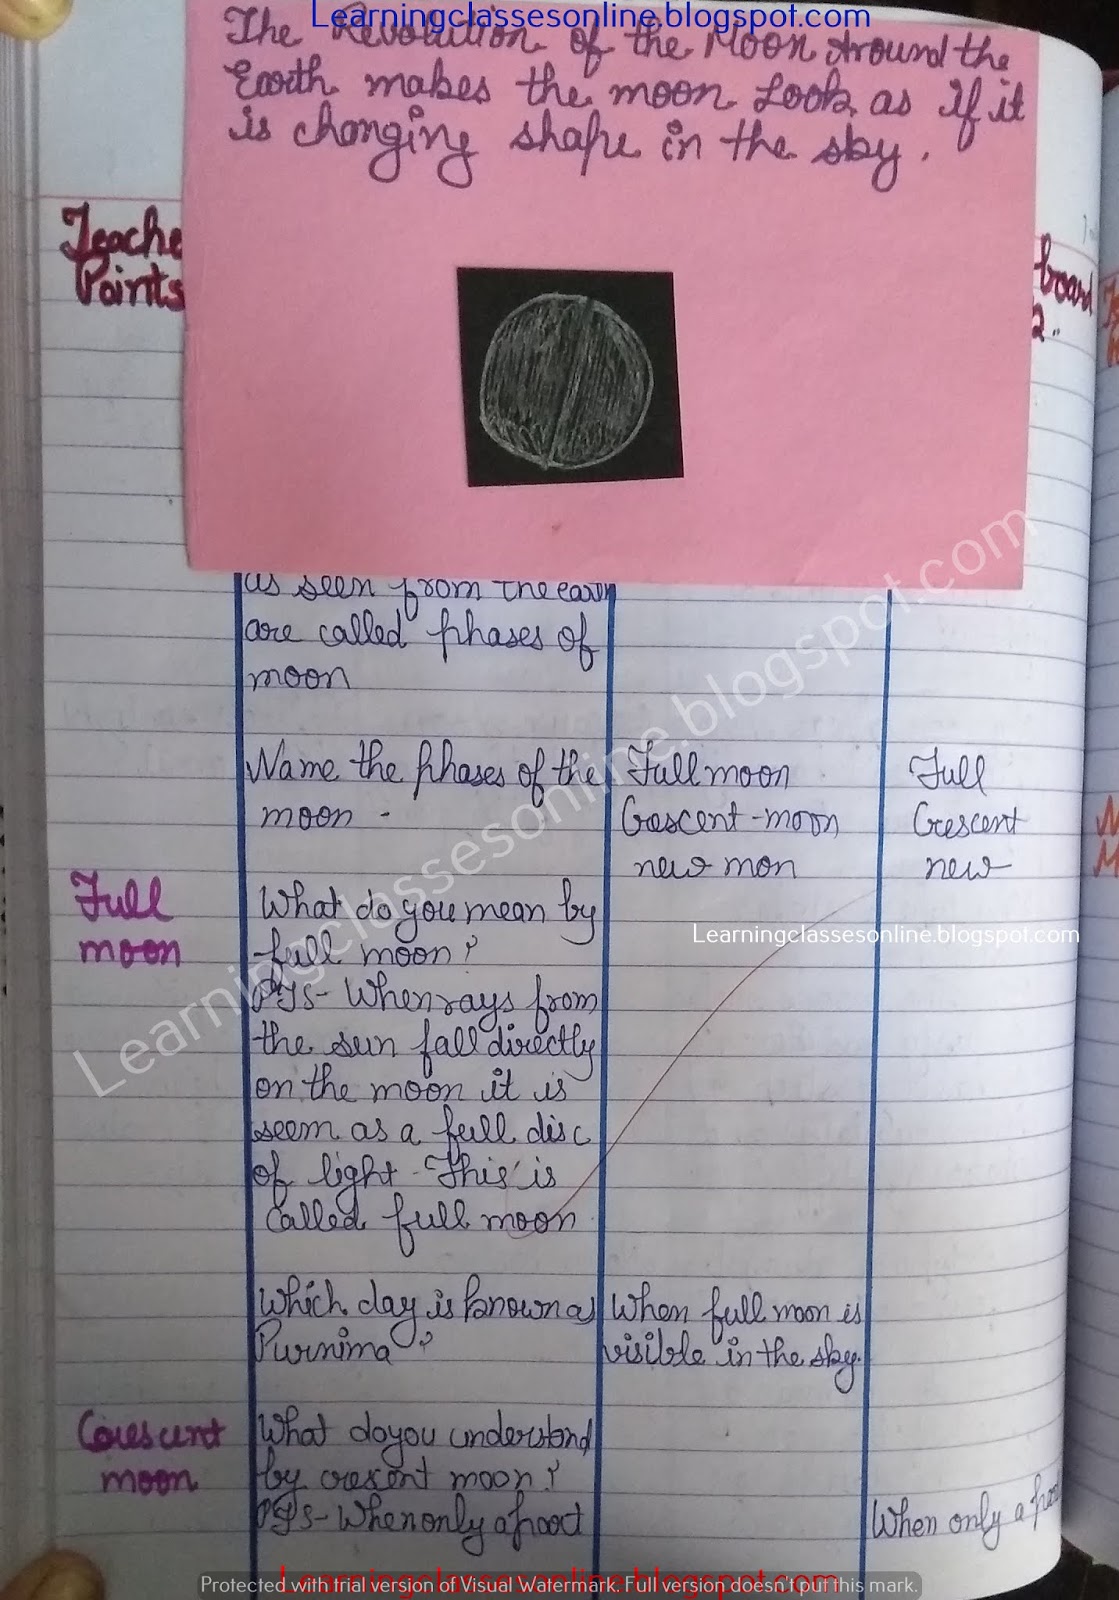 Learningclassesonline.blogspot.com
The Revolution of the Moon Around the
Earth makes the moon Look as if it
is changing shape in the sky.
Teache
Points
board
as seen from the earth
are called phases of
moon
Name the phases of the
moon -
Full moon
Crescent-moon
new mon
Full
Crescent
new
Full
moon
What do you mean by
full moon?
PTS- When rays from
the sun fall directly
on the moon it is
seem as a full disc
of light. This is
called full moon
Learningclassesonline.blogspot.com
Learningclassesonline.blogspot.com
Which day is known as
Purnima?
When full moon is
visible in the sky.
Crescent
moon
What do you understand
by crescent moon?
PTS- When only a part
When only a part
Learningclassesonline.blogspot.com
Protected with trial version of Visual Watermark. Full version doesn't put this mark.